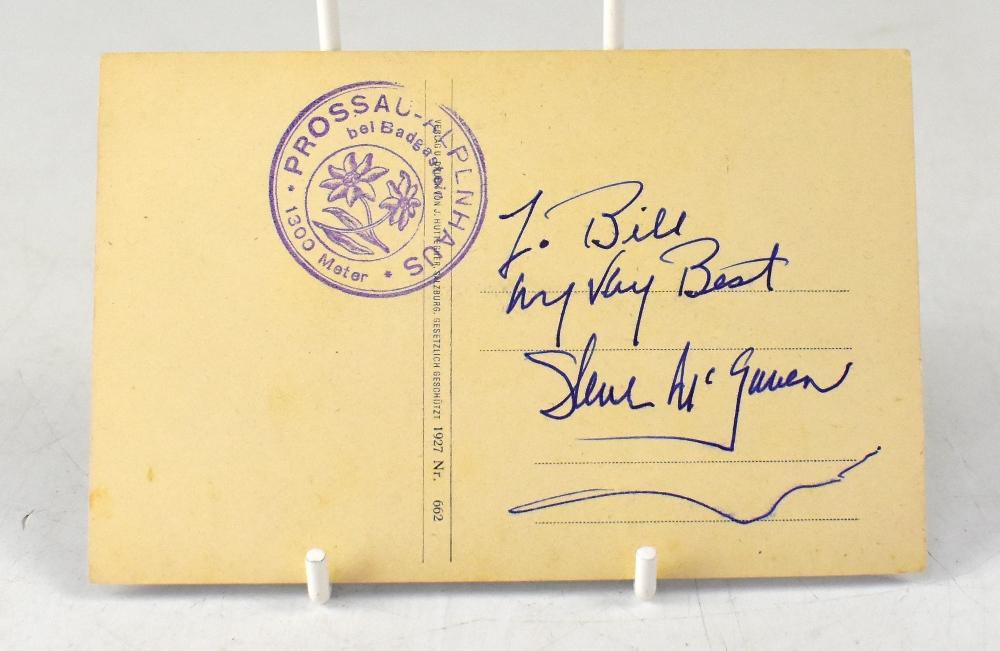 PROSSAU-ALPLNHAUS
bei Badgastein
* 1300 Meter *
VERLAG U. DRUCK VON J. HUTTEGGER, SALZBURG. GESETZLICH GESCHÜTZT 1927 Nr. 662
To. Bill
my Very Best
Steve McQueen